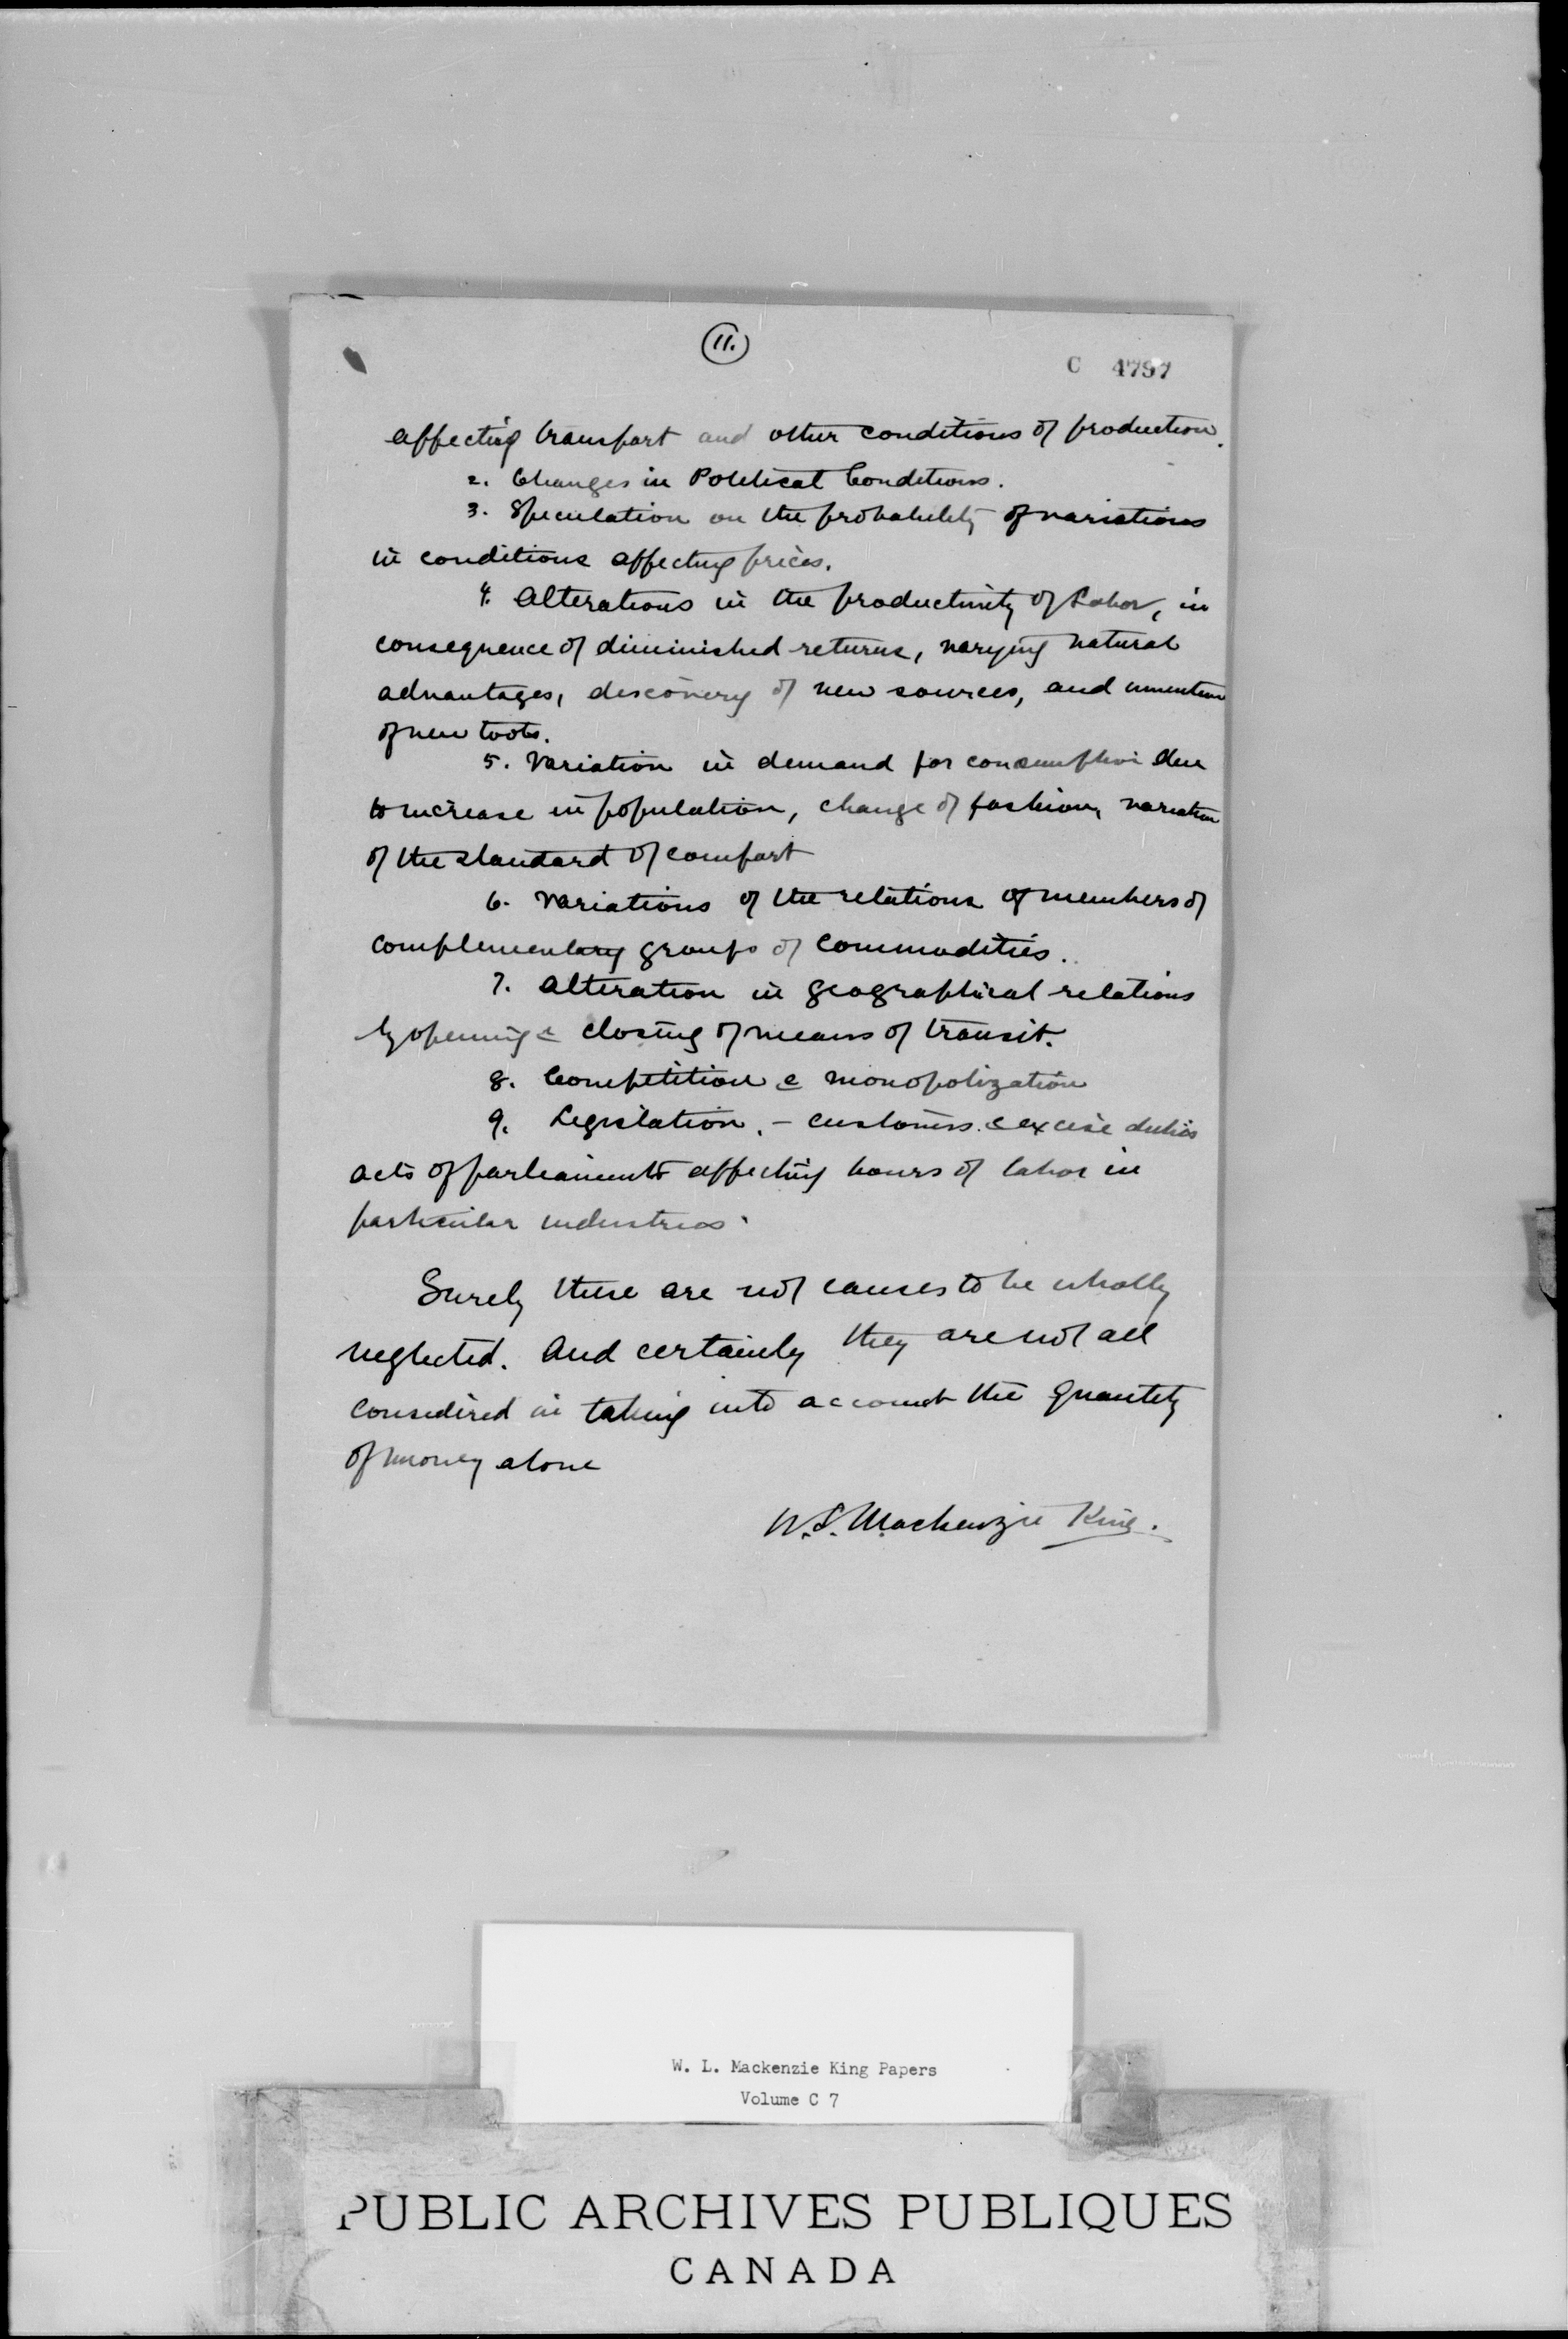 11.
C 4797
affecting transport and other conditions of production.
2. Changes in Political Conditions.
3. Speculation on the probability of variations
in conditions affecting prices.
4. Alterations in the productivity of Labor, in
consequence of diminished returns, varying natural
advantages, discovery of new sources, and invention
of new tools.
5. Variation in demand for consumption due
to increase in population, change of fashion, variation
of the standard of comfort
6. Variations of the relations of members of
complementary groups of commodities.
7. Alteration in geographical relations
by opening & closing of means of transit.
8. Competition & monopolization
9. Legislation. - customs & excise duties
acts of parliament affecting hours of labor in
particular industries.
Surely these are not causes to be wholly
neglected. And certainly they are not all
considered in taking into account the quantity
of money alone
W.L. Mackenzie King.
W. L. Mackenzie King Papers
Volume C 7
PUBLIC ARCHIVES PUBLIQUES
CANADA